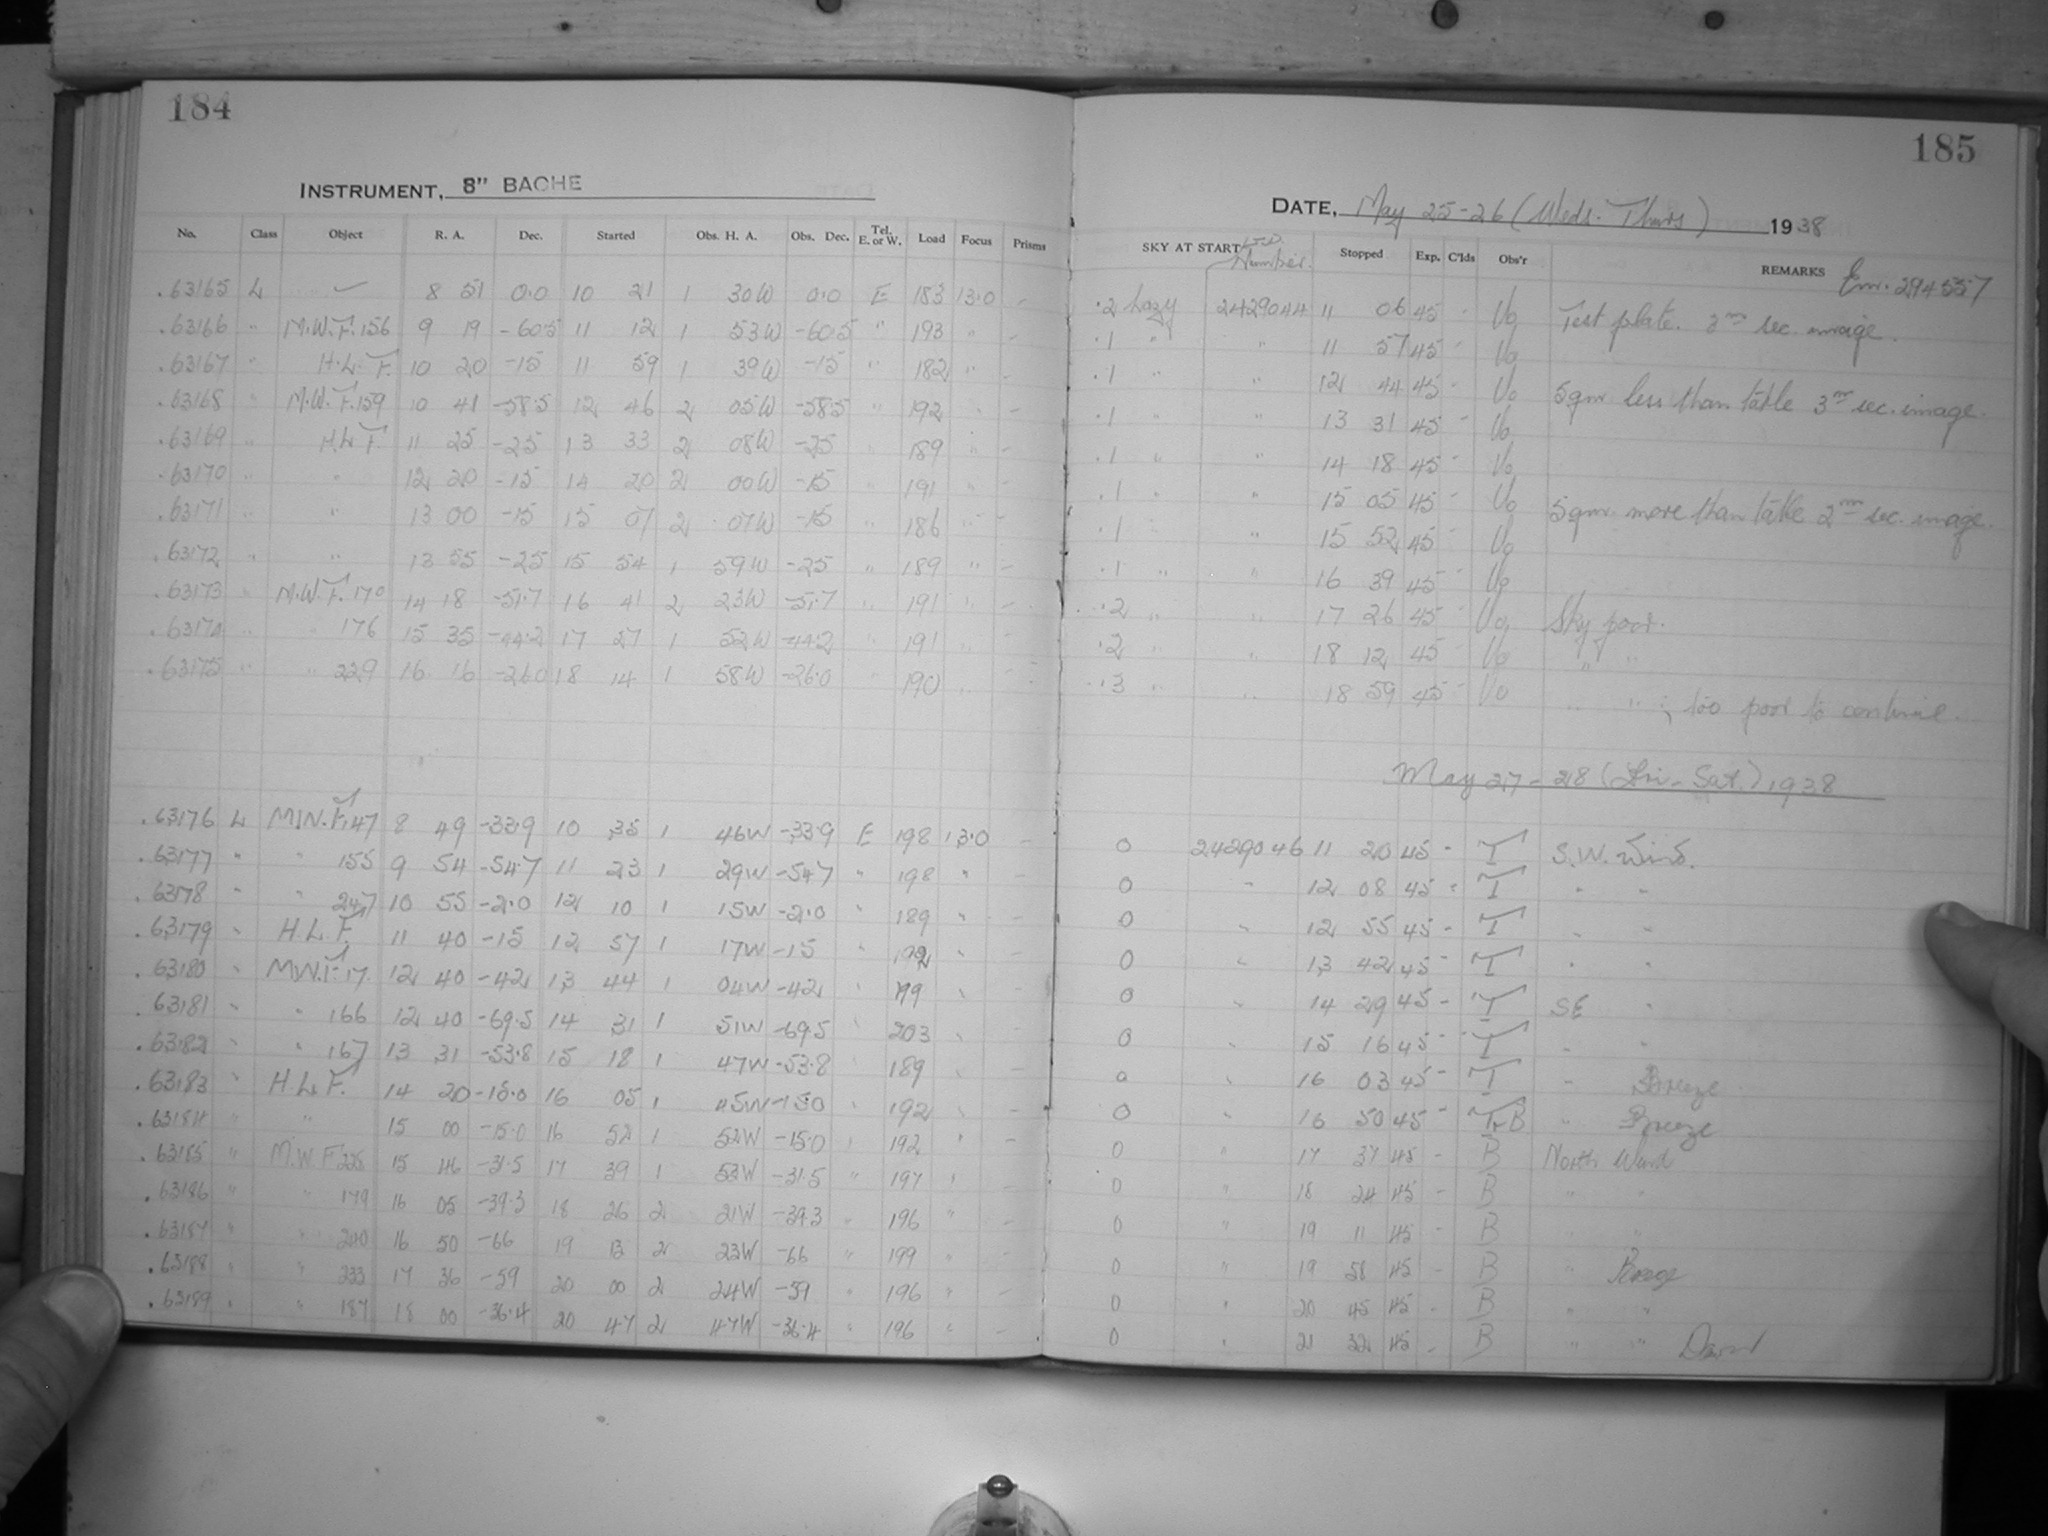 184
185
INSTRUMENT, 8" BACHE
DATE, May 25-26 (Weds.-Thurs) 1938
No. Class Object R. A. Dec. Started Obs. H. A. Obs. Dec. Tel. E. or W. Load Focus Prisms
SKY AT START J.D. Number. Stopped Exp. C'lds Obs'r REMARKS Em. 294557
.63165 L — 8 51 0.0 10 21 1 30W 0.0 E 183 13.0 - .2 hazy 2429044 11 06 45 - Vo Test plate. 3rd sec. image.
.63166 " M.W.F. 156 9 19 -60.5 11 12 1 53W -60.5 " 193 " - .1 " " 11 57 45 - Vo
.63167 " H.L.F. 10 20 -15 11 59 1 39W -15 " 182 " - .1 " " 12 44 45 - Vo 5 gm. less than table 3rd sec. image.
.63168 " M.W.F. 159 10 41 -58.5 12 46 2 05W -58.5 " 192 " - .1 " " 13 31 45 - Vo
.63169 " H.L.F. 11 25 -25 13 33 2 08W -25 " 189 " - .1 " " 14 18 45 - Vo
.63170 " " 12 20 -15 14 20 2 00W -15 191 " - .1 " " 15 05 45 - Vo 5 gm. more than table 2nd sec. image.
.63171 " " 13 00 -15 15 07 2 07W -15 186 " - .1 " " 15 52 45 - Vo
.63172 " " 13 55 -25 15 54 1 59W -25 " 189 " - .1 " " 16 39 45 - Vo
.63173 " M.W.F. 170 14 18 -51.7 16 41 2 23W -51.7 " 191 " - .2 " " 17 26 45 - Vo Sky poor.
.63174 " " 176 15 35 -44.2 17 27 1 52W -44.2 " 191 " - .2 " " 18 12 45 - Vo " "
.63175 " " 229 16 16 -26.0 18 14 1 58W -26.0 " 190 " - .3 " " 18 59 45 - Vo " " ; too poor to continue.
May 27-28 (Fri-Sat.) 1938
.63176 L M.W.F. 147 8 49 -33.9 10 35 1 46W -33.9 E 198 13.0 - 0 2429046 11 20 45 - T S.W. Wind.
.63177 " " 155 9 54 -54.7 11 23 1 29W -54.7 " 198 " - 0 " 12 08 45 - T " "
.63178 " " 247 10 55 -2.0 12 10 1 15W -2.0 " 189 " - 0 " 12 55 45 - T " "
.63179 " H.L.F. 11 40 -15 12 57 1 17W -15 " 192 " - 0 " 13 42 45 - T " "
.63180 " M.W.F. 17 12 40 -42 13 44 1 04W -42 " 199 " - 0 " 14 29 45 - T SE "
.63181 " " 166 12 40 -69.5 14 31 1 51W -69.5 " 203 " - 0 " 15 16 45 - T " "
.63182 " " 167 13 31 -53.8 15 18 1 47W -53.8 189 - 0 " 16 03 45 - T " Breeze
.63183 " H.L.F. 14 20 -15.0 16 05 1 45W -15.0 " 192 " - 0 " 16 50 45 - T+B " Breeze
.63184 " " 15 00 -15.0 16 52 1 52W -15.0 " 192 " - 0 " 17 37 45 - B North Wind
.63185 " M.W.F. 15 46 -31.5 17 39 1 53W -31.5 " 197 " - 0 " 18 24 45 - B " "
.63186 " " 179 16 05 -39.3 18 26 2 21W -39.3 " 196 " - 0 " 19 11 45 - B " "
.63187 " 16 50 -66 19 13 2 23W -66 " 199 " - 0 " 19 58 45 - B " Breeze
.63188 " " 233 17 36 -59 20 00 2 24W -59 " 196 " - 0 " 20 45 45 - B " "
.63189 " " 187 18 00 -36.4 20 47 2 47W -36.4 " 196 " - 0 " 21 32 45 - B " " Dawn